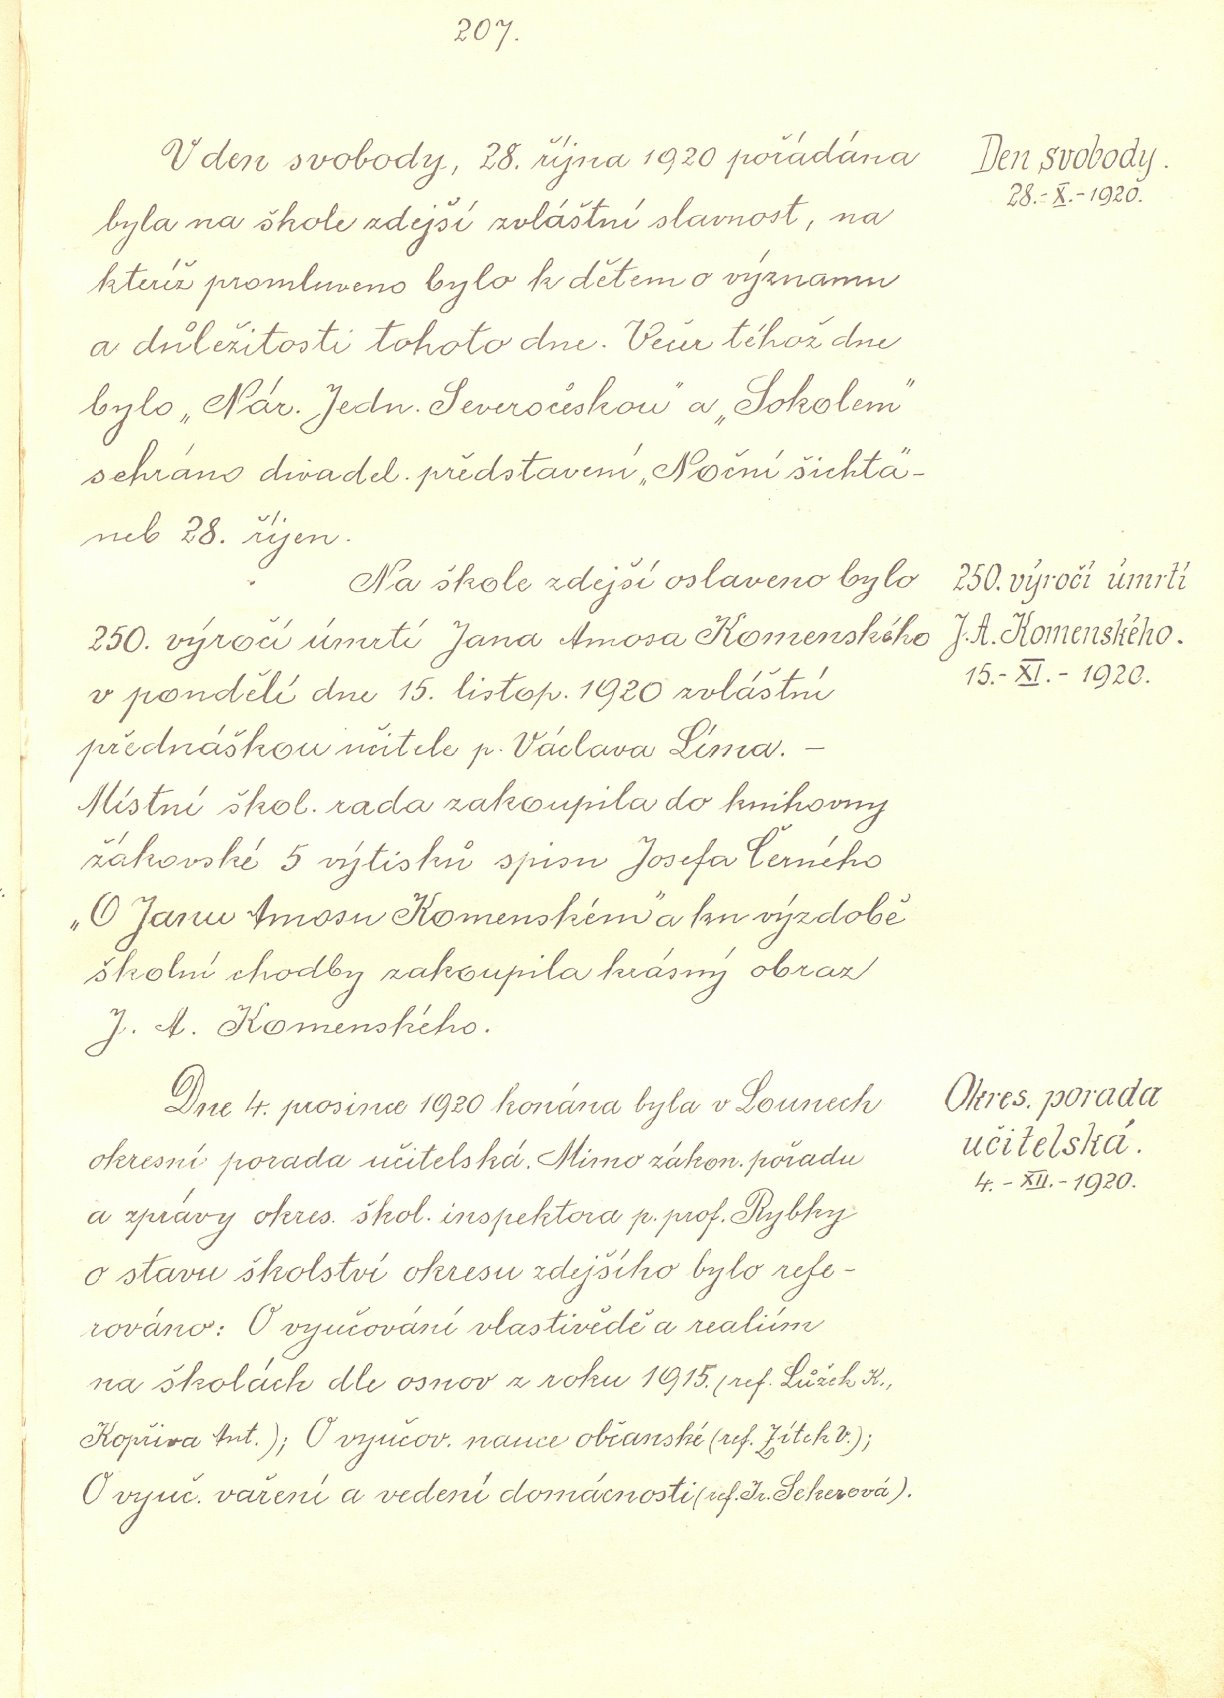 207.
V den svobody, 28. října 1920 pořádána
byla na škole zdejší zvláštní slavnost, na
kteréž promluveno bylo k dětem o významu
a důležitosti tohoto dne. Večer téhož dne
bylo „Nár. Jedn. Severočeskou" a „Sokolem"
sehráno divadel. představení „Noční šichta" -
neb 28. říjen.
Den svobody.
28.-X.-1920.
Na škole zdejší oslaveno bylo
250. výročí úmrtí Jana Amosa Komenského
v pondělí dne 15. listop. 1920 zvláštní
přednáškou učitele p. Václava Líma. –
Místní škol. rada zakoupila do knihovny
žákovské 5 výtisků spisu Josefa Černého
„O Janu Amosu Komenském" a ku výzdobě
školní chodby zakoupila krásný obraz
J. A. Komenského.
250. výročí úmrtí
J. A. Komenského.
15.-XI.-1920.
Dne 4. prosince 1920 konána byla v Lounech
okresní porada učitelská. Mimo zákon. pořadu
a zprávy okres. škol. inspektora p. prof. Rybky
o stavu školství okresu zdejšího bylo refe-
rováno: O vyučování vlastivědě a realiím
na školách dle osnov z roku 1915. (ref. Lůžek K.,
Kopřiva Ant.); O vyučov. nauce občanské (ref. Zítek V.);
O vyuč. vaření a vedení domácnosti (ref. Ir. Sekerová).
Okres. porada
učitelská.
4.-XII.-1920.